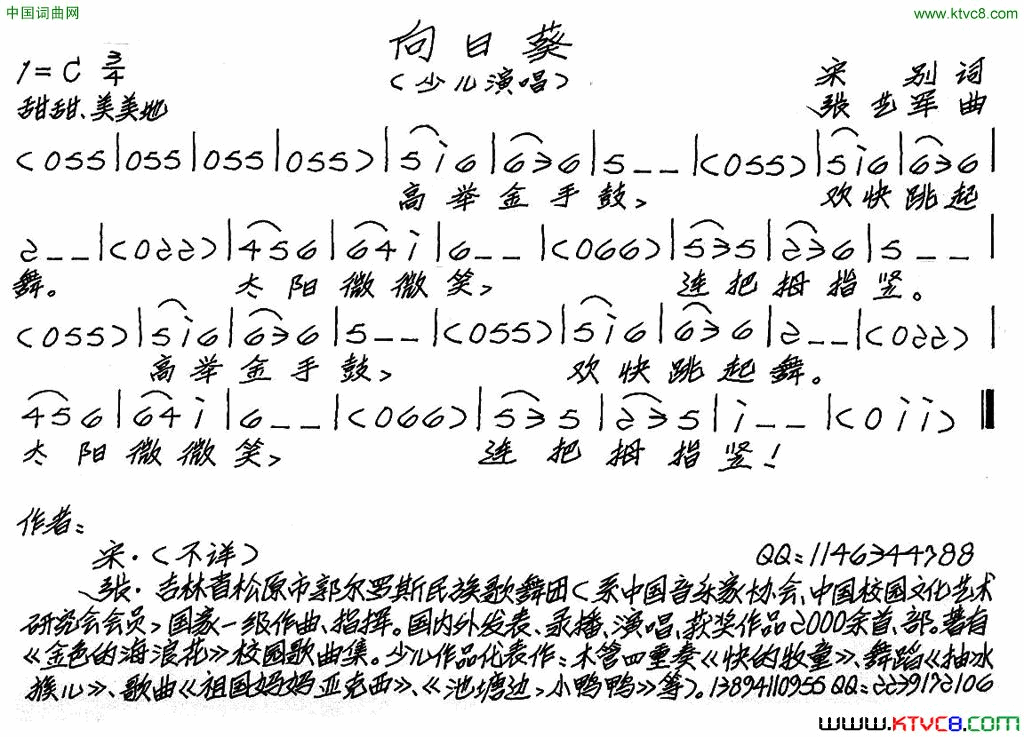 中国词曲网 www.ktvc8.com
向日葵
1=C 3/4 (少儿演唱) 宋别词
甜甜、美美地 张艺军曲
(055|055|055|055)|5 i 6|6 3 6|5 - -|(055)|5 i 6|6 3 6|
高举金手鼓, 欢快跳起
2 - -|(022)|4 5 6|6 4 i|6 - -|(066)|5 3 5|2 3 6|5 - -|
舞。 太阳微微笑, 连把拇指竖。
(055)|5 i 6|6 3 6|5 - -|(055)|5 i 6|6 3 6|2 - -|(022)|
高举金手鼓, 欢快跳起舞。
4 5 6|6 4 i|6 - -|(066)|5 3 5|2 3 5|i - -|(0 i i)‖
太阳微微笑, 连把拇指竖!
作者:
宋·(不详) QQ:1146344388
张·吉林省松原市郭尔罗斯民族歌舞团(系中国音乐家协会、中国校园文化艺术
研究会会员,国家一级作曲、指挥。国内外发表、录播、演唱、获奖作品2000余首、部。著有
《金色的海浪花》校园歌曲集。少儿作品代表作:木管四重奏《快的牧童》、舞蹈《抽冰
猴儿》、歌曲《祖国妈妈亚克西》、《池塘边,小鸭鸭》等)。13894110955 QQ:2239172106
www.KTVC8.com